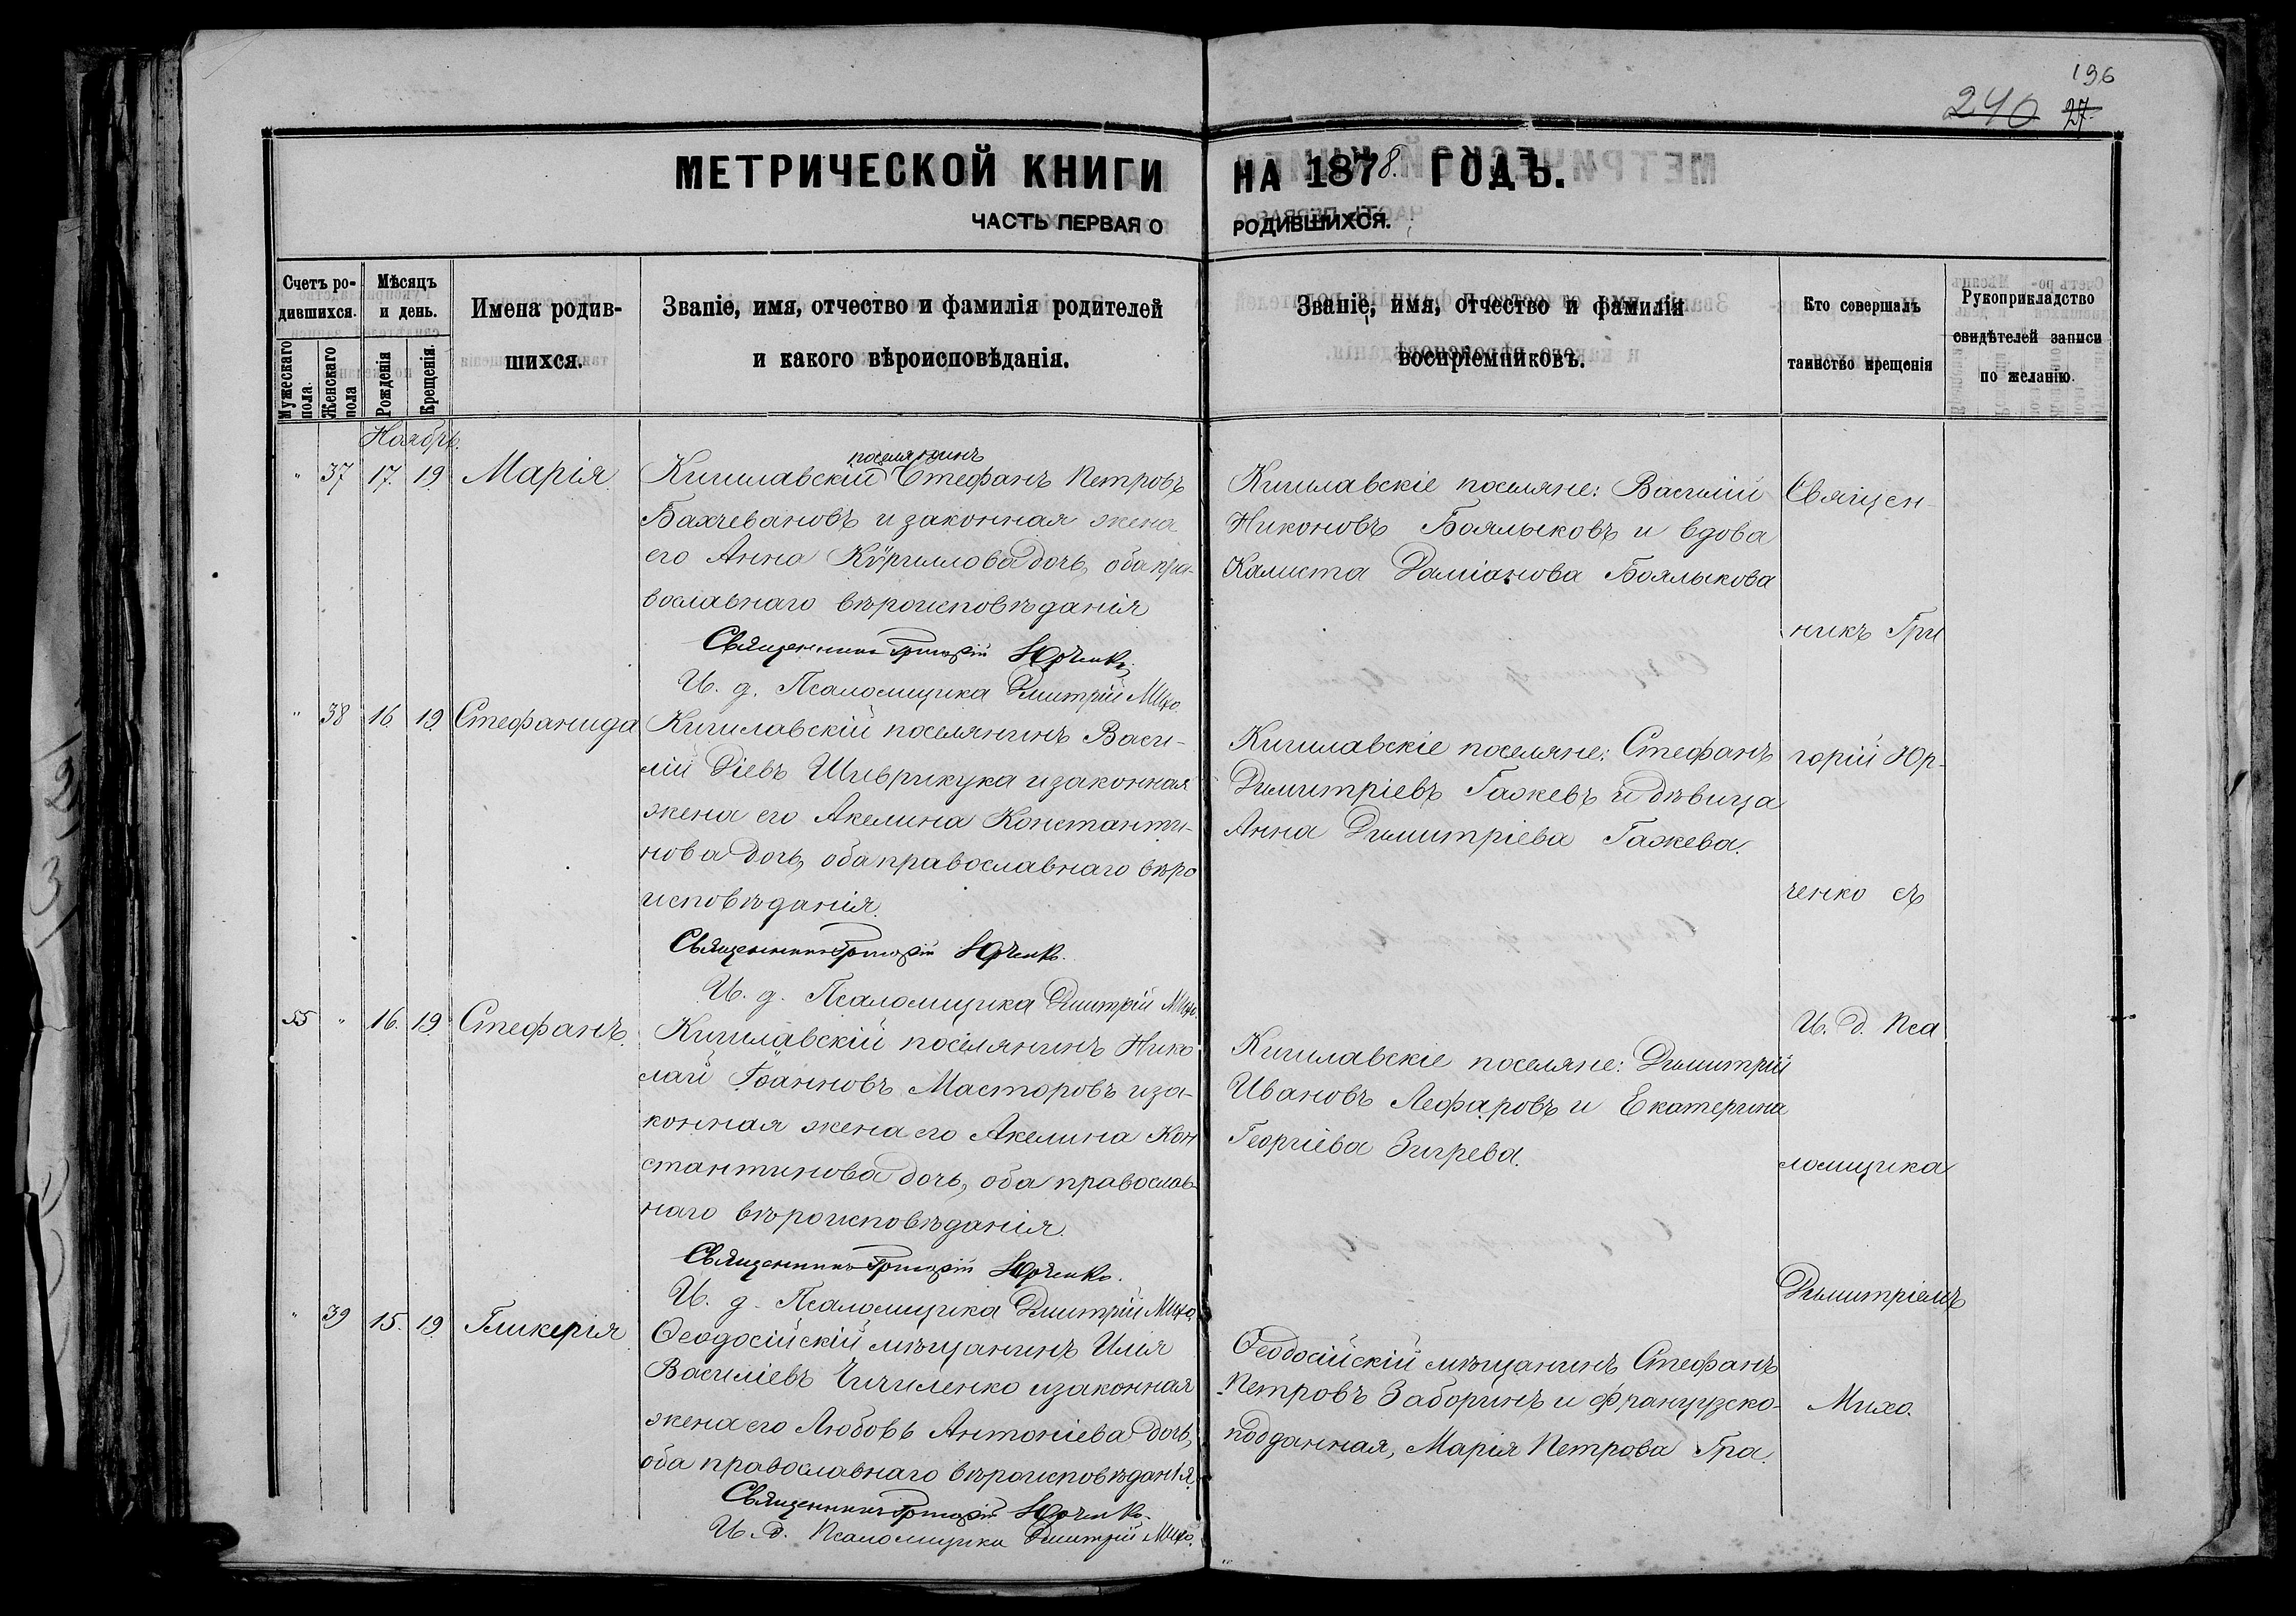 196
240 27.
МЕТРИЧЕСКОЙ КНИГИ НА 1878. ГОДЪ.
ЧАСТЬ ПЕРВАЯ О РОДИВШИХСЯ.
Счетъ ро-
дившихся.
Мужескаго
пола.
Женскаго
пола
Мѣсяцъ
и день.
Рожденія
Крещенія.
Имена родив-
шихся.
Званіе, имя, отчество и фамилія родителей
и какого вѣроисповѣданія.
Званіе, имя, отчество и фамилія
воспріемниковъ.
Кто совершалъ
таинство крещенія
Рукоприкладство
свидѣтелей записи
по желанію.
Ноябрь.
" 37 17. 19. Марія.
поселянинъ
Кишлавскій Стефанъ Петровъ
Бахчевановъ и законная жена
его Анна Кѵриллова дочь, оба пра-
вославнаго вѣроисповѣданія
Священникъ Григорій Юрченко.
И. д. Псаломщика Дмитрій Михо.
Кишлавскіе поселяне: Василій
Никоновъ Боялыковъ и вдова
Калиста Даміанова Боялыкова
" 38 16 19. Стефанида
Кишлавскій поселянинъ Васи-
лій Діевъ Шиврикука и законная
жена его Акелина Константи-
нова дочь, оба православнаго вѣро
исповѣданія.
Священникъ Григорій Юрченко.
И. д. Псаломщика Дмитрій Михо.
Кишлавскіе поселяне: Стефанъ
Димитріевъ Гажевъ и дѣвица
Анна Димитріева Гажева.
55 " 16. 19. Стефанъ.
Кишлавскій поселянинъ Нико
лай Іоанновъ Масторовъ и за-
конная жена его Акелина Кон
стантинова дочь, оба православ-
наго вѣроисповѣданія.
Священникъ Григорій Юрченко.
И. д. Псаломщика Дмитрій Михо.
Кишлавскіе поселяне: Димитрій
Ивановъ Лефаровъ и Екатерина
Георгіева Зигрева.
" 39 15. 19. Гликерія
Ѳеодосійскій мѣщанинъ Илія
Василіевъ Чичиленко и законная
жена его Любовь Антоніева дочь,
оба православнаго вѣроисповѣданія.
Священникъ Григорій Юрченко.
И. д. Псаломщика Дмитрій Михо.
Ѳеодосійскій мѣщанинъ Стефанъ
Петровъ Заборинъ и французско-
подданная, Марія Петрова Гра.
Священ-
никъ Гри
горій Юр-
ченко съ
И. д. Пса
ломщика
Димитріемъ
Михо.